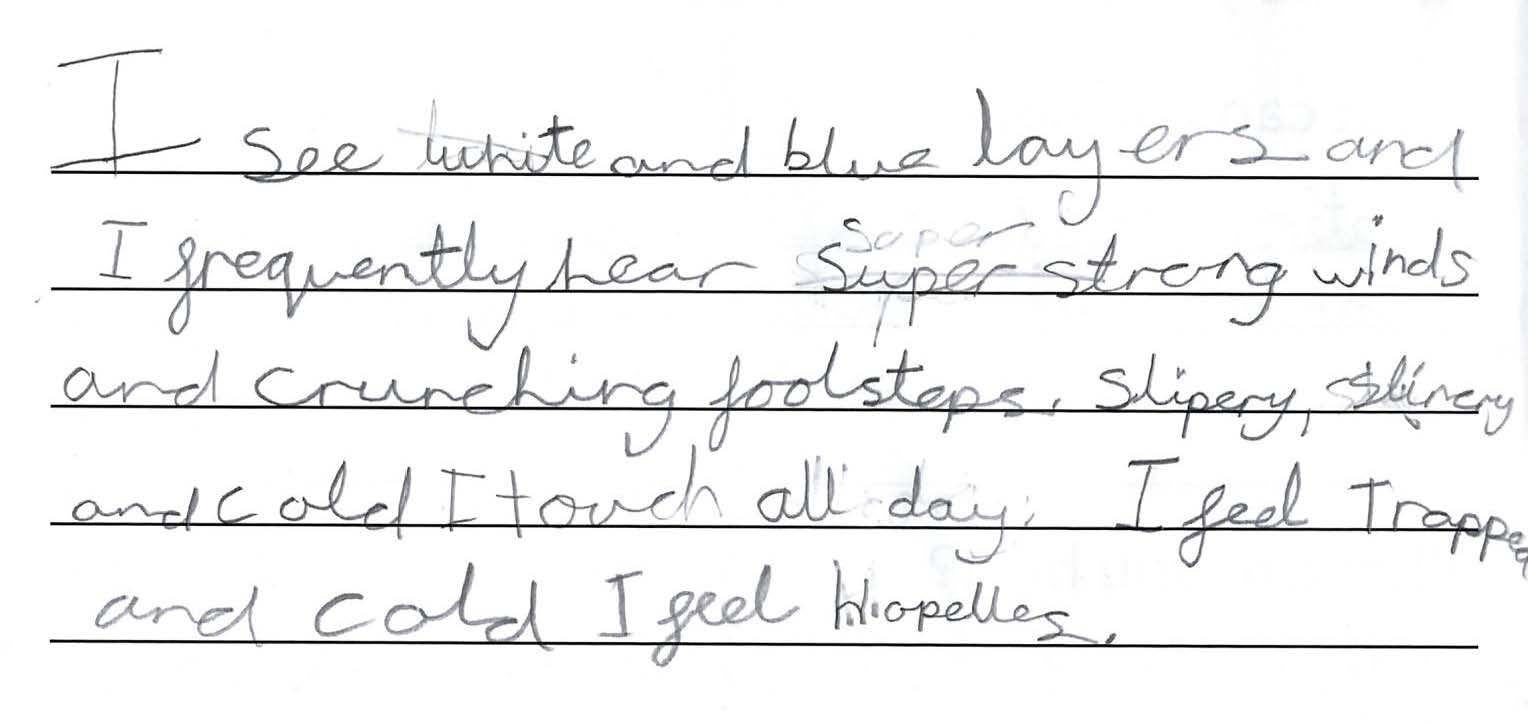 I see white and blue layers and
I frequently hear super strong winds
and crunching footsteps. Slipery,
and cold I touch all day. I feel Trapped
and cold I feel hopelles.